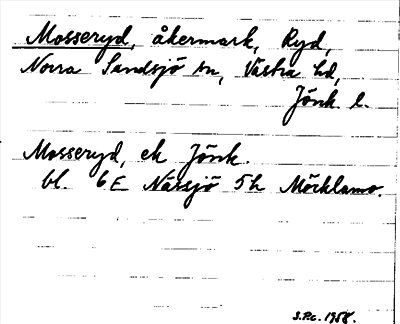 Mosseryd, åkermark, Ryd,
Norra Sandsjö sn, Västra hd,
Jönk. l.
Mosseryd, ek Jönk.
bl. 6 E Nässjö 5h Möcklamo.
S.P.c. 1958.